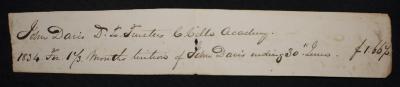 John Davis Dr. to Trustees C. Cills Academy.
1834 For 1⅔ Months tuition of John Davis ending 30" June. $1.66⅔